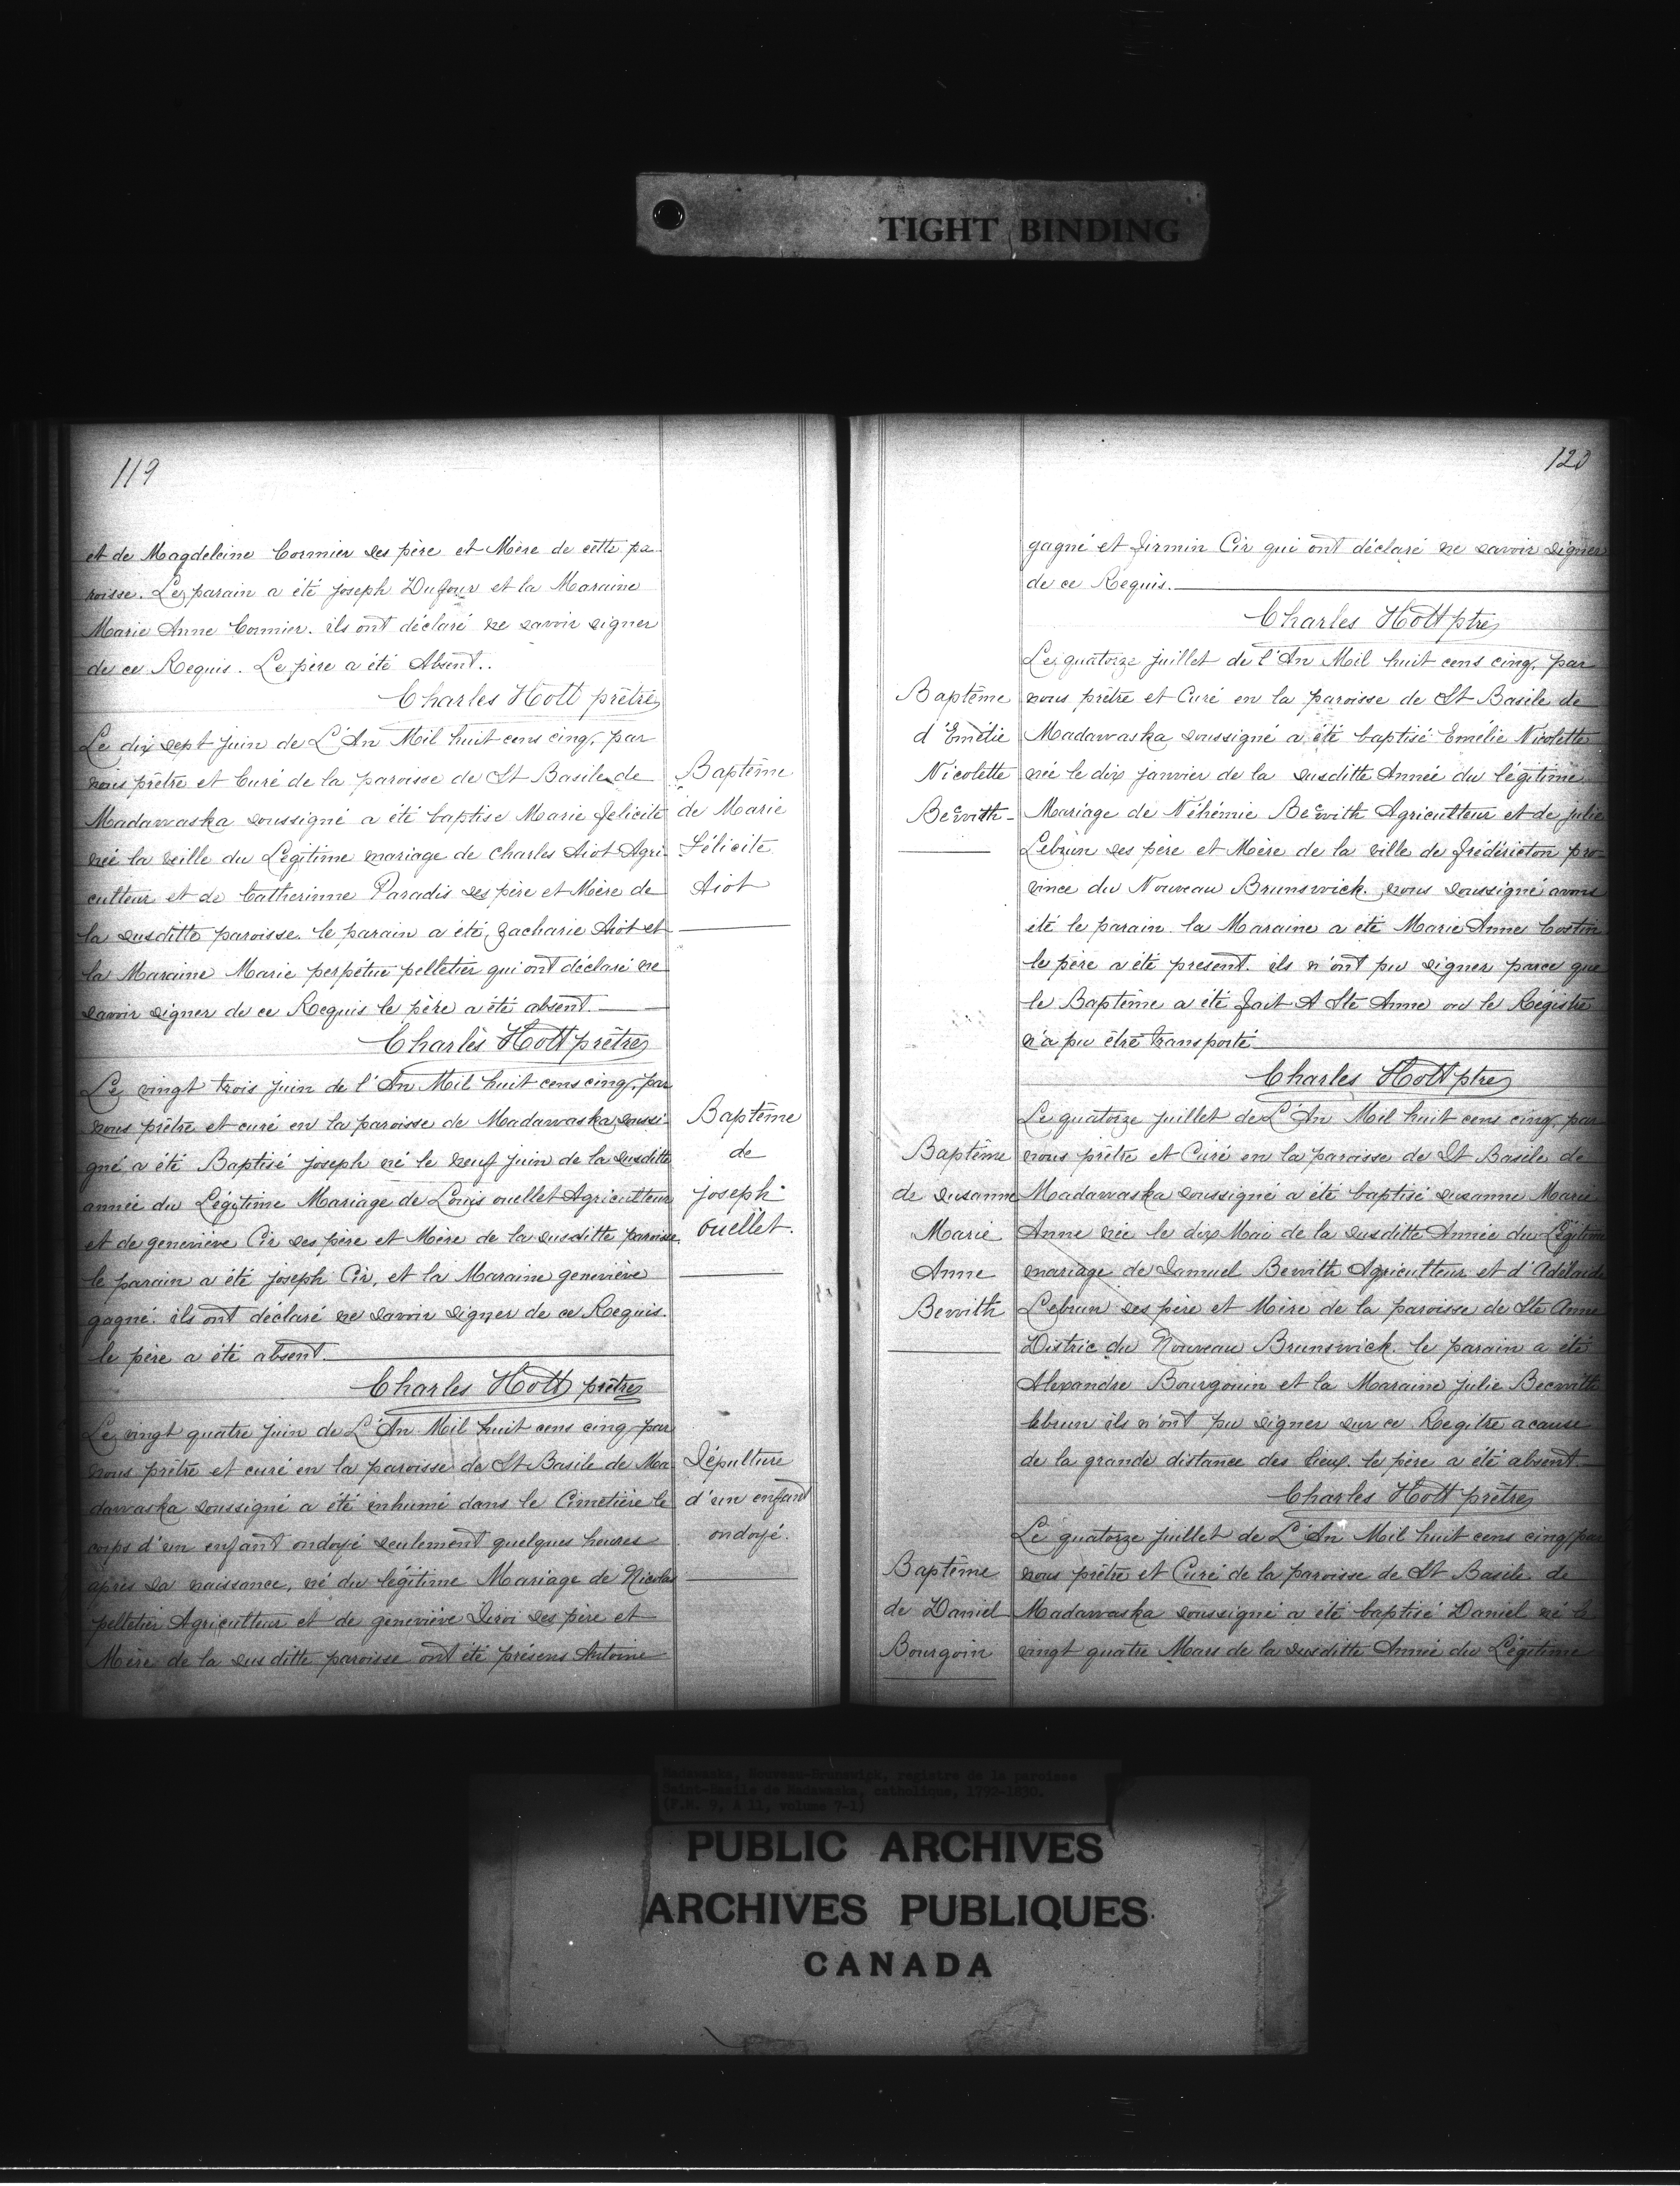 TIGHT BINDING
119
et de Magdeleine Cormier ses père et Mère de cette pa-
roisse. Le parain a été joseph Dufour et la Maraine
Marie Anne Cormier. ils ont déclaré ne savoir signer
de ce Requis. Le père a été Absent..
Charles Hott prêtre
Le dix sept juin de L'An Mil huit cens cinq, par
nous prêtre et Curé de la paroisse de St Basile de
Madawaska soussigné a été baptise Marie felicité
née la veille du Légitime mariage de Charles Aiot Agri-
culteur et de Catherinne Paradis ses père et Mère de
la susditte paroisse. le parain a été, Zacharie Aiot et
la Maraine Marie perpétue pelletier qui ont déclaré ne
savoir signer de ce Requis le père a été absent.
Charles Hott prêtre
Baptême
de Marie
Félicité
Aiot
Le vingt trois juin de l'An Mil huit cens cinq, par
nous prêtre et curé en la paroisse de Madawaska soussi-
gné a été Baptisé joseph né le neuf juin de la susditte
année du Légitime Mariage de Louis ouellet Agriculteur
et de geneviève Cir ses père et Mère de la susditte paroisse.
le parain a été joseph Cir, et la Maraine geneviève
gagné. ils ont déclaré ne savoir signer de ce Requis.
le père a été absent.
Charles Hott prêtre
Baptême
de
joseph
Ouellet.
Le vingt quatre juin de L'An Mil huit cens cinq par
nous prêtre et curé en la paroisse de St Basile de Ma
dawaska soussigné a été inhumé dans le Cimetière le
corps d'un enfant ondoyé seulement quelques heures
après sa naissance, né du légitime Mariage de Nicolas
pelletier Agriculteur et de geneviève Leroi ses père et
Mère de la susditte paroisse ont été présens Antoine
Sépulture
d'un enfant
ondoyé.
120
gagné et firmin Cir qui ont déclaré ne savoir signer
de ce Requis.
Charles Hott ptre
Le quatorze juillet de l'An Mil huit cens cinq, par
nous prêtre et Curé en la paroisse de St Basile de
Madawaska soussigné a été baptisé Emélie Nicolette
née le dix janvier de la susditte Année du légitime
Mariage de Néhémie Becwith Agriculteur et de julie
Lebrun ses père et Mère de la ville de frédéricton pro-
vince du Nouveau Brunswick. nous soussigné avons
été le parain. la Maraine a été Marie Anne Costin
le père a été present. ils n'ont pu signer parce que
le Baptême a été fait A Ste Anne ou le Régistre
n'a pu être transporté
Charles Hott ptre
Baptême
d'Emélie
Nicolette
Becwith
Le quatorze juillet de L'An Mil huit cens cinq, par
nous prêtre et Curé en la paroisse de St Basile de
Madawaska soussigné a été baptisé susanne Marie
Anne née le dix Mai de la susditte Année du Légitime
mariage de Samuel Bewith Agriculteur et d'Adélaide
Lebrun ses père et Mère de la paroisse de Ste Anne
Distric du Nouveau Brunswick. le parain a été
Alexandre Bourgouin et la Maraine julie Becwith
lebrun ils n'ont pu signer sur ce Regitre acause
de la grande distance des lieux. le père a été absent.
Charles Hott prêtre
Baptême
de susanne
Marie
Anne
Bewith
Le quatorze juillet de L'An Mil huit cens cinq par
nous prêtre et Curé de la paroisse de St Basile de
Madawaska soussigné a été baptisé Daniel né le
vingt quatre Mars de la susditte Année du Légitime
Baptême
de Daniel
Bourgoin
Madawaska, Nouveau-Brunswick, registre de la paroisse
Saint-Basile de Madawaska, catholique, 1792-1830.
(F.M. 9, A 11, volume 7-1)
PUBLIC ARCHIVES
ARCHIVES PUBLIQUES
CANADA